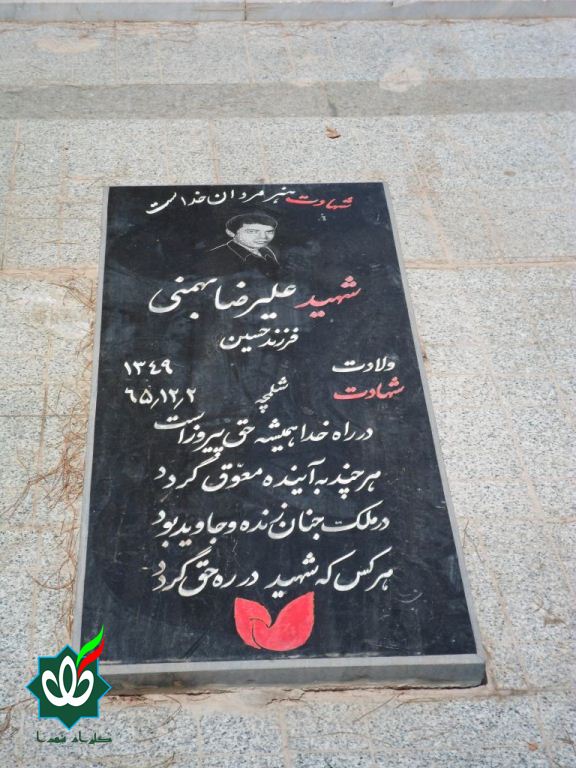 شهادت هنر مردان خداست
شهید علیرضا بهمنی
فرزند حسین
ولادت ۱۳۴۹
شهادت شلمچه ۶۵/۱۲/۲
در راه خدا همیشه حق پیروز است
هر چند به آینده معوّق گردد
در ملک جنان زنده و جاوید بود
هر کس که شهید در ره حق گردد
گلزار شهدا